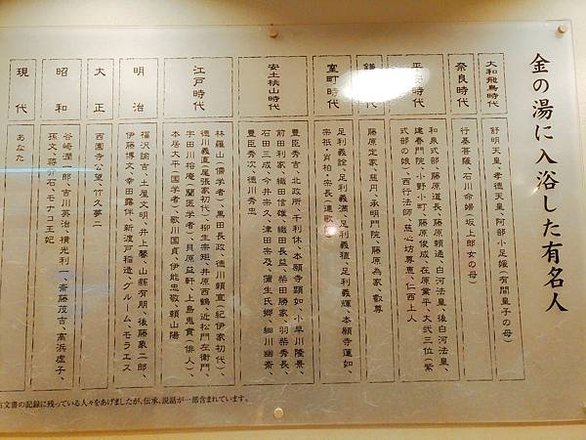 金の湯に入浴した有名人
大和飛鳥時代
舒明天皇、孝徳天皇、阿部小足媛(有間皇子の母)
奈良時代
行基菩薩、石川命婦(坂上郎女の母)
平安時代
和泉式部、藤原道長、藤原頼通、白河法皇、後白河法皇、
建春門院、小野小町、藤原俊成、在原業平、大弐三位(紫
式部の娘)、西行法師、慈心坊尊恵、仁西上人
鎌 代
藤原定家、慈円、承明門院、藤原為家、叡尊
室町時代
足利義詮、足利義満、足利義稙、足利義輝、本願寺蓮如、
宗祇・肖柏・宗長(連歌師)
安土桃山時代
豊臣秀吉、北政所、千利休、本願寺顕如、小早川隆景、
前田利家、織田信雄、織田長益、柴田勝家、羽柴秀長、
石田三成、今井宗久、津田宗及、蒲生氏郷、細川幽斎、
豊臣秀次、徳川秀忠
江戸時代
林羅山(儒学者)、黒田長政、徳川頼宣(紀伊家初代)、
徳川義直(尾張家初代)、柳生宗矩、井原西鶴、近松門左衛門、
宇田川榕庵(蘭医学者)、貝原益軒、上島鬼貫(俳人)、
本居大平(国学者)、歌川国貞、伊能忠敬、頼山陽
明治
福沢諭吉、土屋文明、井上馨、山縣有朋、後藤象二郎、
伊藤博文、幸田露伴、新渡戸稲造、グルーム、モラエス
大正
西園寺公望、竹久夢二
昭和
谷崎潤一郎、吉川英治、横光利一、斎藤茂吉、高浜虚子、
孫文、蒋介石、モナコ王妃
現代
あなた
古文書の記録に残っている人々をあげましたが、伝承、説話が一部含まれています。